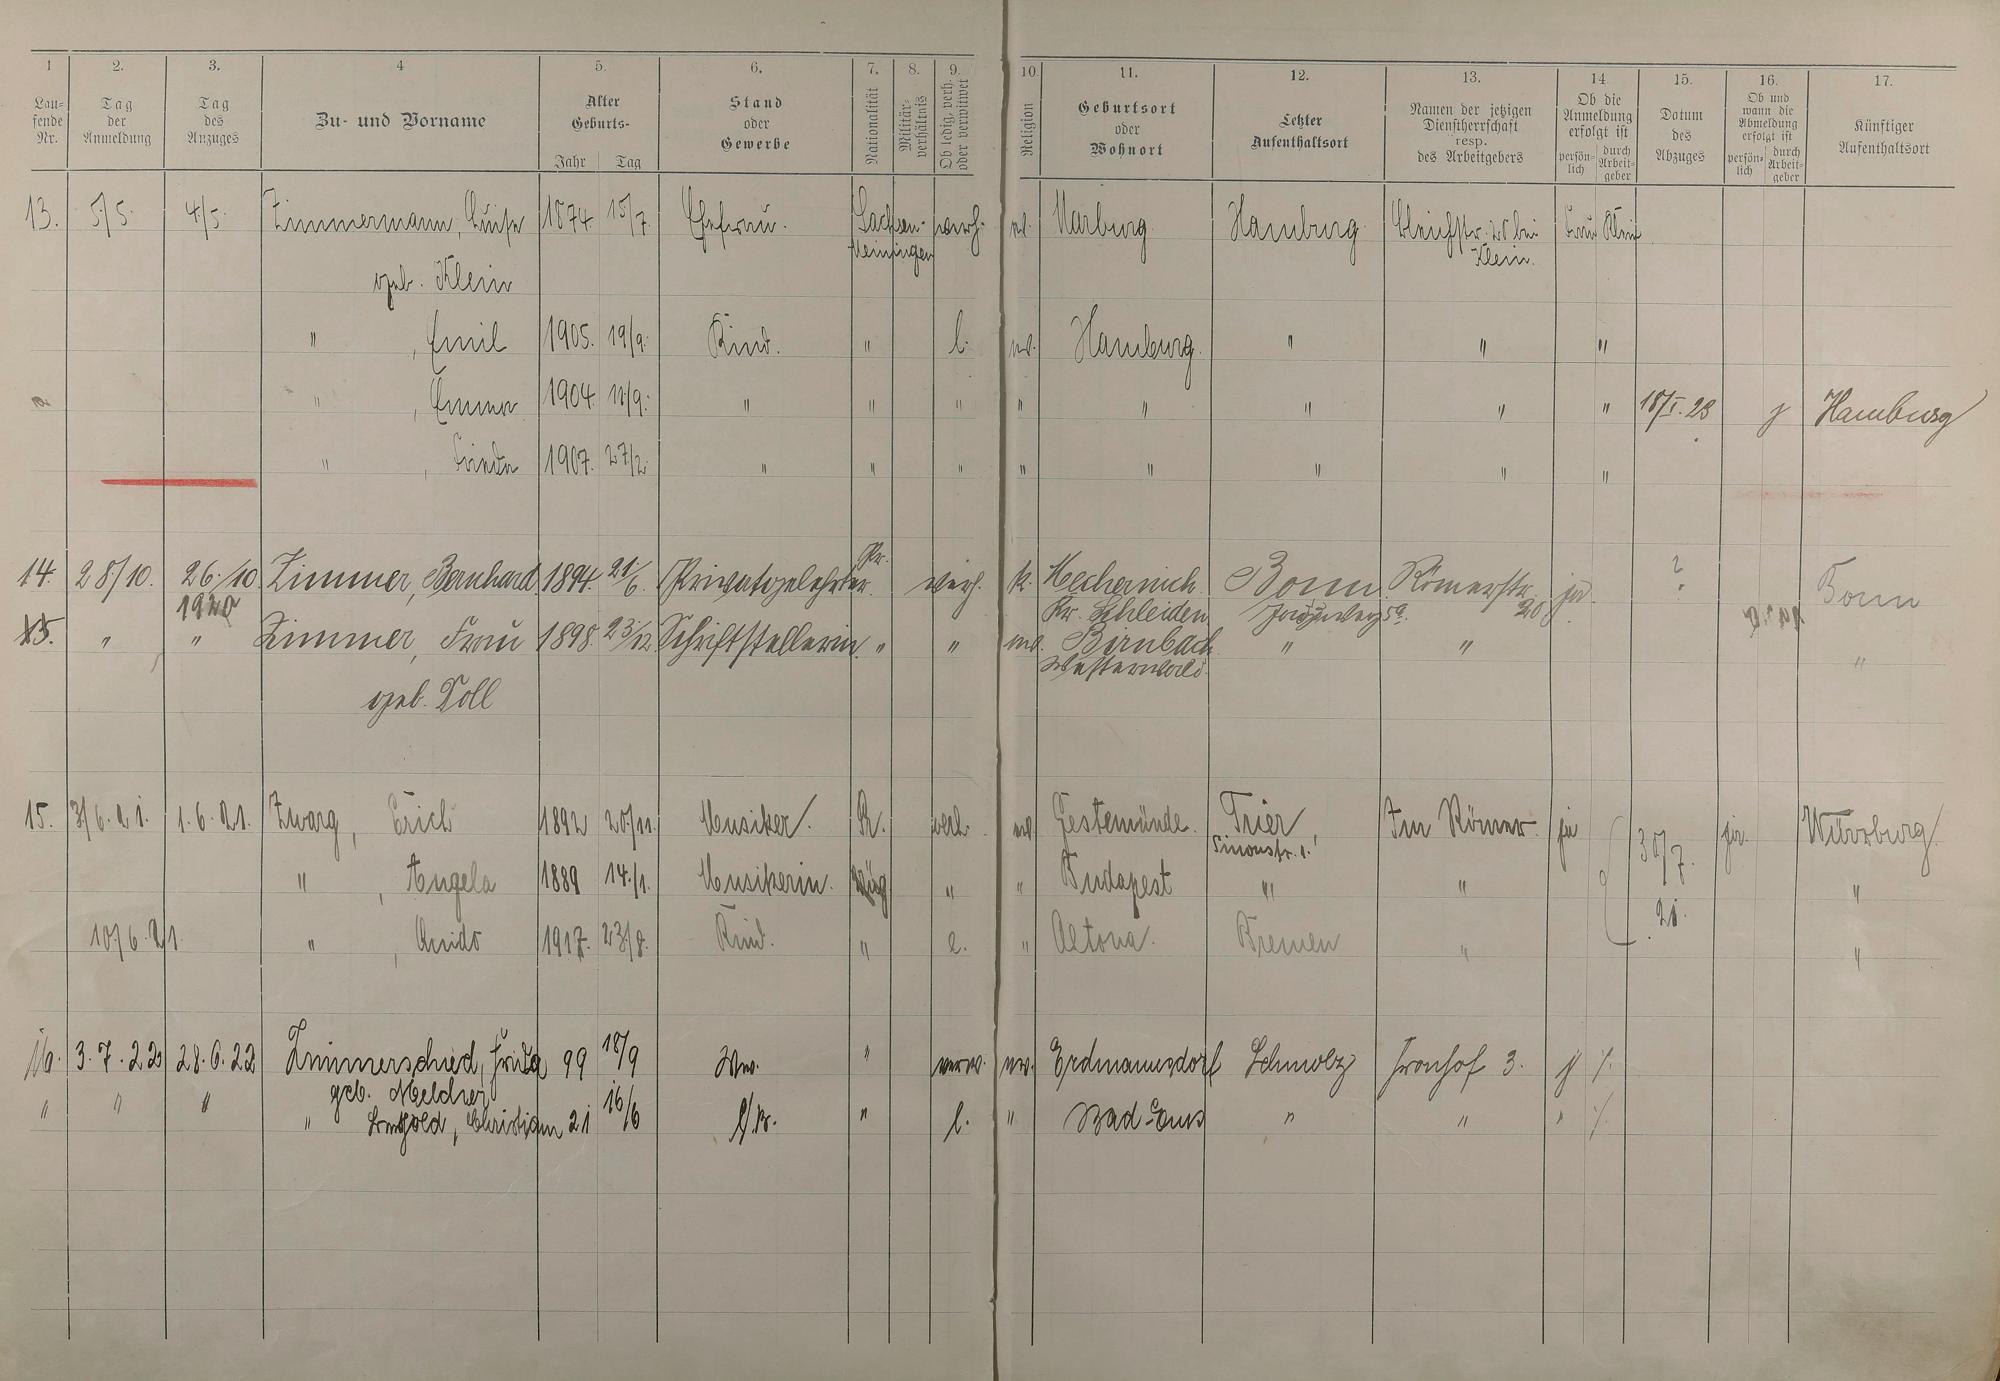 1 2. 3. 4 5. 6. 7. 8. 9. 10. 11. 12. 13. 14 15. 16. 17.
Lau-
fende
Nr.
Tag
der
Anmeldung
Tag
des
Anzuges
Zu- und Vorname
Alter
Geburts-
Jahr Tag
Stand
oder
Gewerbe
Nationalität
Militär-
verhältnis
Ob ledig, verh.
oder verwitwet
Religion
Geburtsort
oder
Wohnort
Letzter
Aufenthaltsort
Namen der jetzigen
Dienstherrschaft
resp.
des Arbeitgebers
Ob die
Anmeldung
erfolgt ist
persön-
lich
durch
Arbeit-
geber
Datum
des
Abzuges
Ob und
wann die
Abmeldung
erfolgt ist
persön-
lich
durch
Arbeit-
geber
Künftiger
Aufenthaltsort
13. 5/5. 4/5. Zimmermann, Luise 1874. 15/7. Ehefrau. Sachsen- verh. ev. Marburg. Hamburg. Bleichstr. 28 bei Frau Klein
Meiningen Klein.
geb. Klein
" , Emil 1905. 19/9. Kind. " l. ev. Hamburg. " " "
" , Emma 1904. 11/9. " " " " " " " " 18/I.23 j Hamburg
" , Frieda 1907. 27/2. " " " " " " " "
14. 28/10. 26./10. Zimmer, Bernhard. 1894. 21/6. Privatgelehrter. Pr. verh. k. Mechernich Bonn. Römerstr. ja. ? Bonn
1920 Kr. Schleiden 5a. 20
15. " " Zimmer, Frau 1898. 23/12 Schriftstellerin. " " ev. Birnbach " " "
Westerwald.
geb. Doll
15. 3/6.21. 1.6.21. Zwarg, Erich 1892 20/11. Musiker. Pr. verh. ev. Gestemünde. Trier, Im Römer. ja 30/7. ja. Würzburg.
Simonstr. 1.
" , Angela 1889 14./1. Musikerin. " " Budapest " " 21. "
10/6.21. " , Guido 1917. 23/8. Kind. " l. " Altona. Bremen " "
16. 3.7.22 28.6.22 Zimmerschied, Frieda 99 18/9 Wwe. " verw. ev. Erdmannsdorf Schmolz Fronhof 3. j /.
geb. Melcher
" " " " , Christian 21 16/6 " l. " Bad-Ems " " " /.